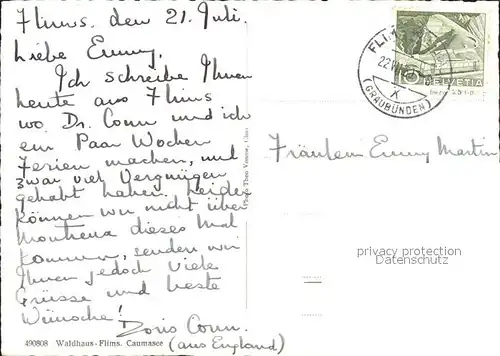 Flims. den 21. Juli.
Liebe Emmy,
Ich schreibe Ihnen
heute aus Flims
wo Dr. Conn und ich
ein Paar Wochen
Ferien machen, und
zwar viel Vergnügen
gehabt haben. Leider
können wir nicht über
Montreux dieses Mal
kommen, senden wir
Ihnen jedoch viele
Grüsse und beste
Wünsche!
Doris Conn.
(aus England)
490808 Waldhaus-Flims. Caumasee
FLIMS
22.VII
X
(GRAUBÜNDEN)
HELVETIA
Fräulein Emmy Martin
privacy protection
WATERMARK